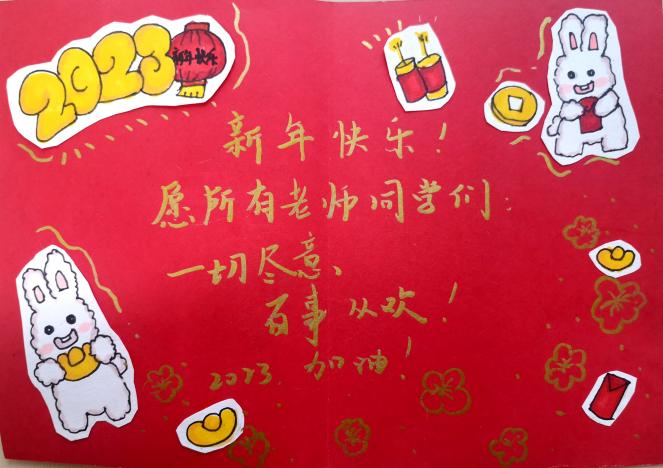 2023
新年快乐
新年快乐！
愿所有老师同学们：
一切尽意、
百事从欢！
2023 加油！